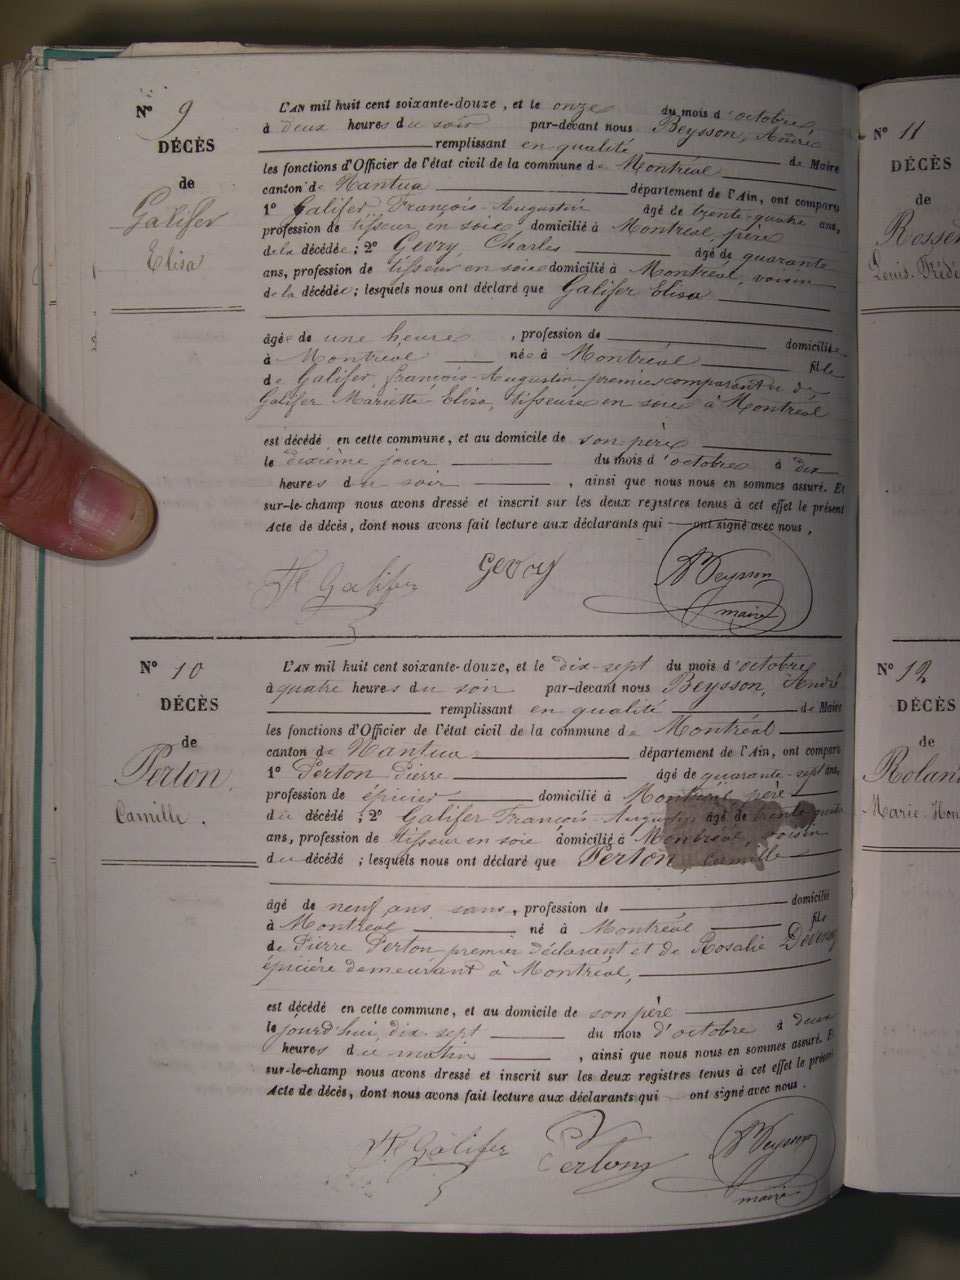 N° 9
DÉCÈS
de
Galifer
Elisa
L'AN mil huit cent soixante-douze, et le onze du mois d'octobre
à deux heures du soir par-devant nous Beysson, André
remplissant en qualité de Maire
les fonctions d'Officier de l'état civil de la commune de Montréal
canton de Nantua département de l'Ain, ont comparu
1° Galifer François-Augustin âgé de trente-quatre ans,
profession de tisseur en soie, domicilié à Montréal, père
de la décédée; 2° Gevry Charles âgé de quarante
ans, profession de tisseur en soie domicilié à Montréal, voisin
de la décédée; lesquels nous ont déclaré que Galifer Elisa
âgée de une heure, profession de domiciliée
à Montréal née à Montréal fille
de Galifer, françois-Augustin premier comparant et de
Galifer Mariette-Elisa, tisseuse en soie à Montréal
est décédé en cette commune, et au domicile de son père
le dixième jour du mois d'octobre à dix
heures du soir, ainsi que nous nous en sommes assuré. Et
sur-le-champ nous avons dressé et inscrit sur les deux registres tenus à cet effet le présent
Acte de décès, dont nous avons fait lecture aux déclarants qui ont signé avec nous,
Galifer Gevry Beysson
maire
N° 10
DÉCÈS
de
Perton,
Camille.
L'AN mil huit cent soixante-douze, et le dix-sept du mois d'octobre
à quatre heures du soir par-devant nous Beysson, André
remplissant en qualité de Maire
les fonctions d'Officier de l'état civil de la commune de Montréal
canton de Nantua département de l'Ain, ont comparu
1° Perton Pierre âgé de quarante-sept ans,
profession de épicier domicilié à Montréal, père
du décédé; 2° Galifer François-Augustin âgé de trente-quatre
ans, profession de tisseur en soie domicilié à Montréal, voisin
du décédé; lesquels nous ont déclaré que Perton, Camille
âgé de neuf ans sans, profession de domicilié
à Montréal né à Montréal fils
de Pierre Perton premier déclarant et de Rosalie
épicière demeurant à Montréal,
est décédé en cette commune, et au domicile de son père
le jourd'hui, dix-sept du mois d'octobre à deux
heures du matin, ainsi que nous nous en sommes assuré. Et
sur-le-champ nous avons dressé et inscrit sur les deux registres tenus à cet effet le présent
Acte de décès, dont nous avons fait lecture aux déclarants qui ont signé avec nous.
Galifer Perton Beysson
maire
N° 11
DÉCÈS
de
N° 12
DÉCÈS
de